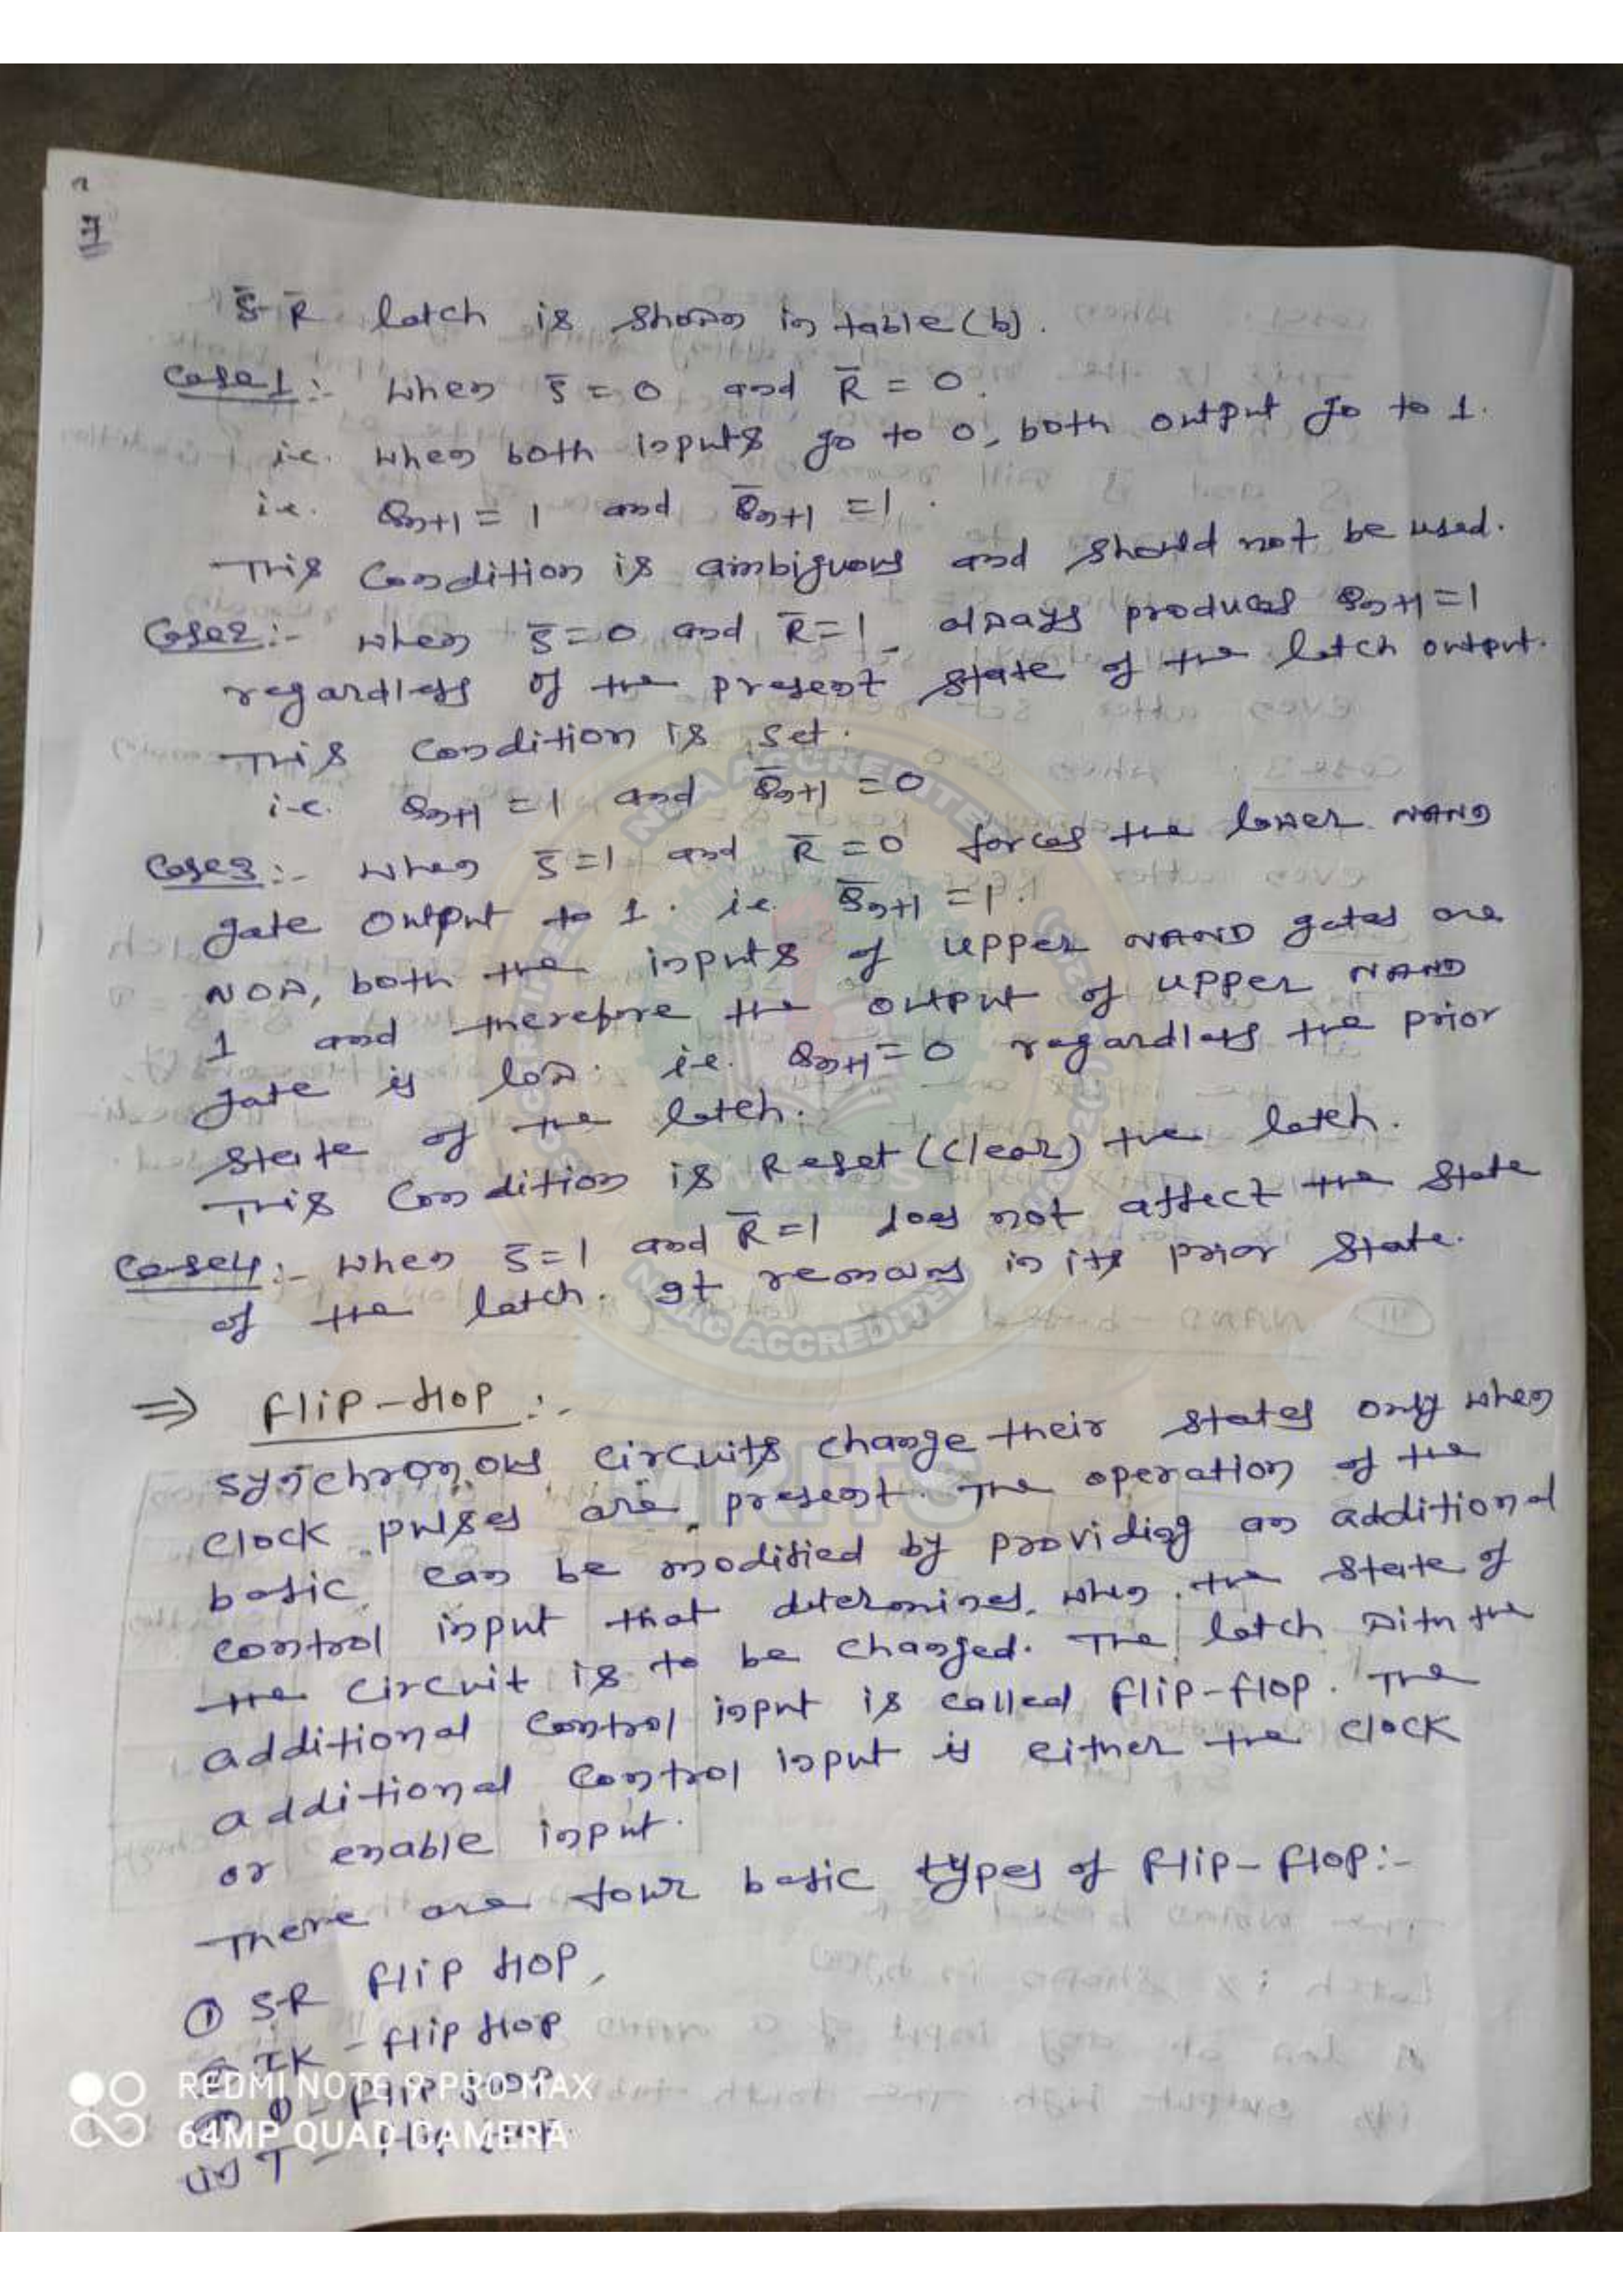 7
S̄-R̄ latch is shown in table (b).
Case1:- when S̄ = 0 and R̄ = 0.
i.e. when both inputs go to 0, both output go to 1.
i.e. Qn+1 = 1 and Q̄n+1 = 1.
This Condition is ambiguous and should not be used.
Case2:- when S̄=0 and R̄=1 always produces Qn+1=1
regardless of the present state of the latch output.
This Condition is set.
i.e. Qn+1 = 1 and Q̄n+1 = 0
Case3:- when S̄=1 and R̄=0 forces the lower NAND
gate output to 1. i.e. Q̄n+1 = 1.
Now, both the inputs of upper NAND gates are
1 and therefore the output of upper NAND
gate is low. i.e. Qn+1=0 regardless the prior
state of the latch.
This Condition is Reset (Clear) the latch.
Case4:- when S̄=1 and R̄=1 does not affect the state
of the latch. It remains in its prior state.
⇒ Flip-flop:-
synchronous circuits change their states only when
clock pulses are present. The operation of the
basic can be modified by providing an additional
control input that determines, when the state of
the circuit is to be changed. The latch with the
additional control input is called flip-flop. The
additional control input is either the clock
or enable input.
There are four basic types of flip-flop:-
① S-R flip flop,
JK - flip flop
D - flip flop
(iv) T - flip flop.
NBA ACCREDITED
NAAC ACCREDITED
MRITS
REDMI NOTE 9 PRO MAX
64MP QUAD CAMERA